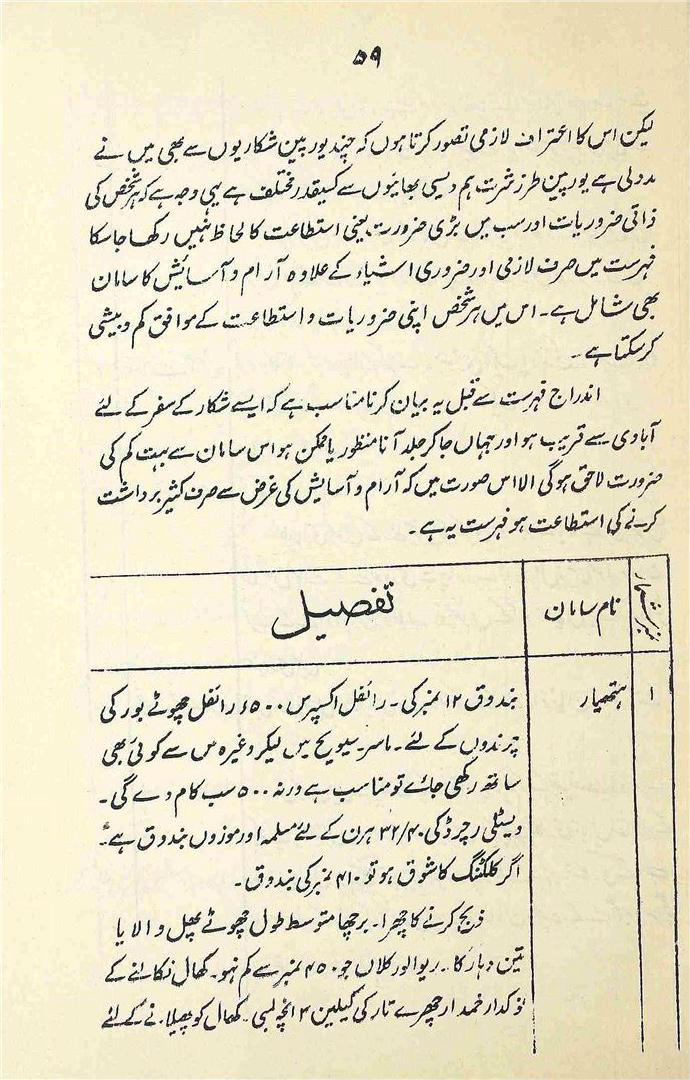 ۵۹
لیکن اس کا اعتراف لازمی تصور کرتا ہوں کہ چند یورپین شکاریوں سے بھی میں نے
مدد لی ہے یورپین طرز شرت ہم دیسی بھائیوں سے کسیقدر مختلف ہے یہی وجہ ہے کہ ہر شخص کی
ذاتی ضروریات اور سب میں بڑی ضرورت یعنی استطاعت کا لحاظ نہیں رکھا جاسکا
فہرست میں صرف لازمی اور ضروری اشیاء کے علاوہ آرام و آسایش کا سامان
بھی شامل ہے۔ اس میں ہر شخص اپنی ضروریات و استطاعت کے موافق کم و بیشی
کرسکتا ہے۔
اندراج فہرست سے قبل یہ بیان کرنا مناسب ہے کہ ایسے شکار کے سفر کے لئے
آبادی سے قریب ہو اور جہاں جاکر جلد آنا منظور یا ممکن ہو اس سامان سے بہت کم کی
ضرورت لاحق ہوگی الا اس صورت میں کہ آرام و آسایش کی غرض سے صرف کثیر برداشت
کرنے کی استطاعت ہو فہرست یہ ہے۔
نمبر شمار نام سامان تفصیل
۱ ہتھیار بندوق ۱۲ نمبر کی۔ رائفل اکسپرس ۵۰۰ء رائفل چھوٹے بور کی
پرندوں کے لئے۔ ماسر سیویج میں لیکر وغیرہ میں سے کوئی بھی
ساتھ رکھی جائے تو مناسب ہے ورنہ ۵۰۰ سب کام دے گی۔
ویسٹلی رچرڈ کی ۳۲/۴۰ ہرن کے لئے مسلمہ اور موزوں بندوق ہے۔
اگر کلکٹنگ کا شوق ہو تو ۴۱۰ نمبر کی بندوق۔
ذبح کرنے کا چھرا۔ برچھا متوسط طول چھوٹے پھل والا یا
تین دہار کا۔ ریوالور کلاں جو ۴۵۰ نمبر سے کم نہو۔ کھال نکالنے کے
نوکدار خمدار چھرے تار کی کیلیں ۳ انچہ لمبی۔ کھال کو پھیلانے کے لئے